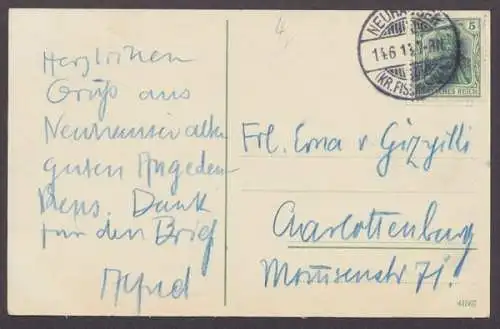 Herzlichen
Gruß aus
Neuhäuser alten
guten Angeden-
kens. Dank
für den Brief
Alfred
4,
NEUHÄUSER
14.6.13.
(KR. FISCH
5
DEUTSCHES REICH
Frl. Erna v Gizycki
Charlottenburg
Mommsenstr 71.